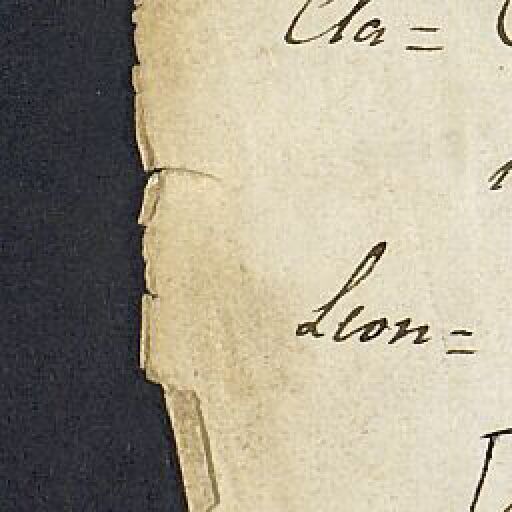 Cla=
Leon=